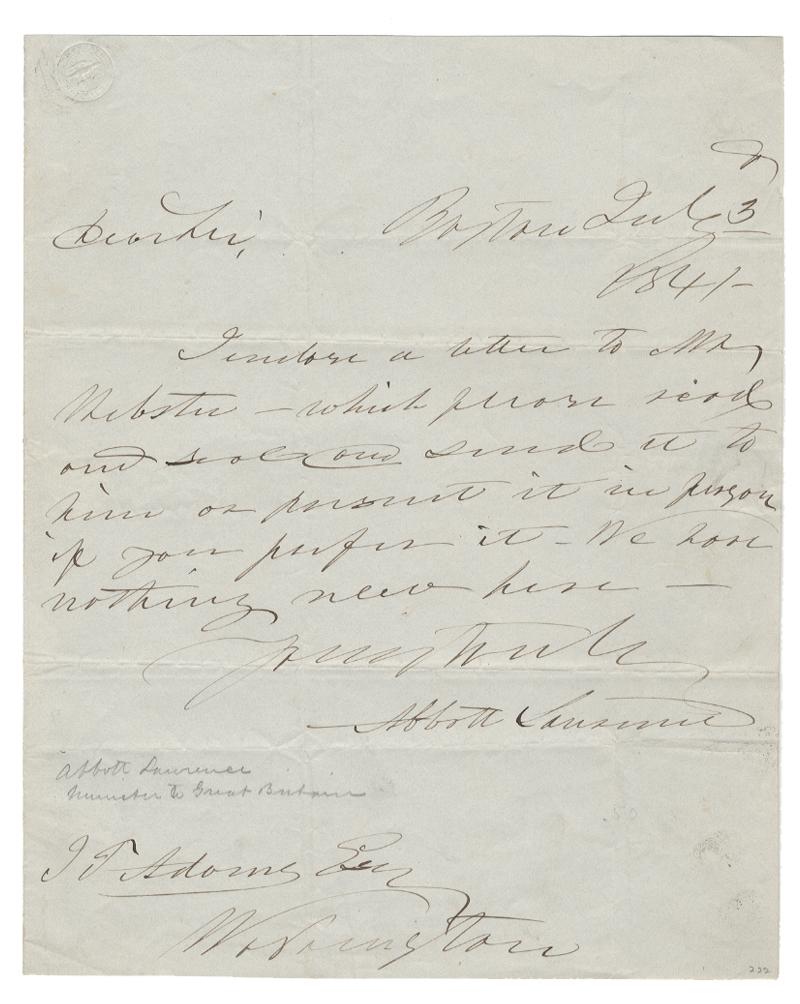 Dear Sir, Boston July 3
1841-
I enclose a letter to Mr
Webster - which please read
and seal and send it to
him or present it in person
if you prefer it - We have
nothing new here —
Yours truly
Abbott Lawrence
Abbott Lawrence
Minister to Great Britain
.50
J T Adams Esq
Washington
222